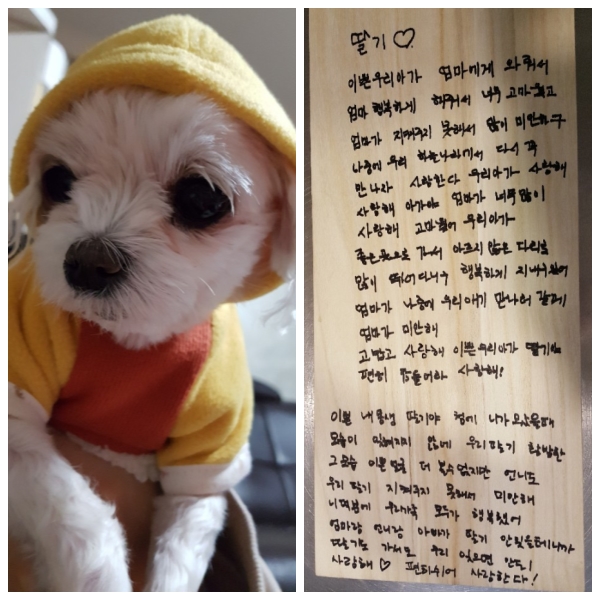 딸기 ♡
이쁜 우리아가 엄마에게 와줘서
엄마 행복하게 해줘서 너무 고마웠고
엄마가 지켜주지 못해서 많이 미안하구
나중에 우리 하늘나라에서 다시 꼭
만나자 사랑한다 우리아가 사랑해
사랑해 아가야 엄마가 너무 많이
사랑해 고마웠어 우리아가
좋은곳으로 가서 아프지 않은 다리로
많이 뛰어다니구 행복하게 지내구있어
엄마가 나중에 우리애기 만나러 갈게
엄마가 미안해
고맙고 사랑해 이쁜우리아가 딸기야
편히 잠들어라 사랑해!
이쁜 내동생 딸기야 첨에 니가 왔을때
모습이 잊혀지지 않네 우리딸기
그모습 이쁜 더 볼수없지만 언니도
우리 딸기 지켜주지 못해서 미안해
니덕분에 우리가족 모두가 행복했어
엄마랑 언니랑 아빠가 딸기 안잊을테니까
딸기도 가서도 우리 잊으면 안되
사랑해 ♡ 편히쉬어 사랑한다!